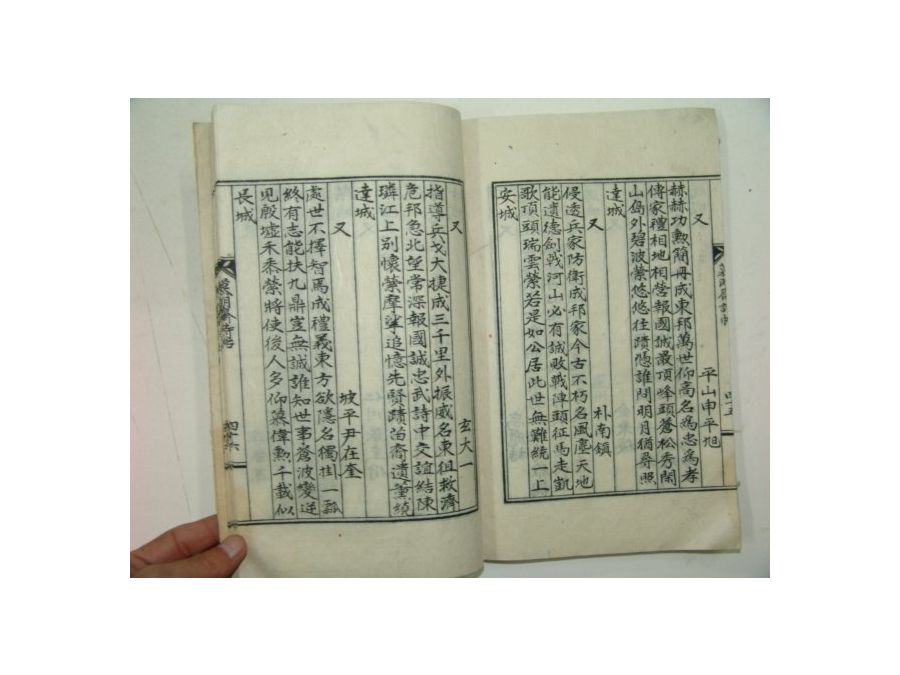 又
平山申平旭
赫赫功勲簡冊成東邦萬世仰高名為忠為孝
傳家禮相地相營報國城最頂峰頭蒼松秀閑
山島外碧波縈悠悠往蹟憑誰問明月猶尋照
達城
又
朴南鎮
侵透兵家防衛成邦家今古不朽名風塵天地
能遺德劍戟河山必有誠敗戰陣頭征馬走凱
歌頂頭瑞雲縈若是如公居此世無難統一上
安城
又
玄大一
指導兵戈大捷成三千里外振威名東徂救濟
危邦急北望常深報國誠忠武詩中交誼結陳
璘江上別懷縈摩挲追憶先賢蹟苔裔遺繞
達城
又
坡平尹在奎
處世不擇智為成禮義東方欲隱名獨掛一瓢
終有志能扶九鼎豈無誠誰知世事蒼波變逆
見殷墟禾黍縈將使後人多仰慕偉勲千載似
長城